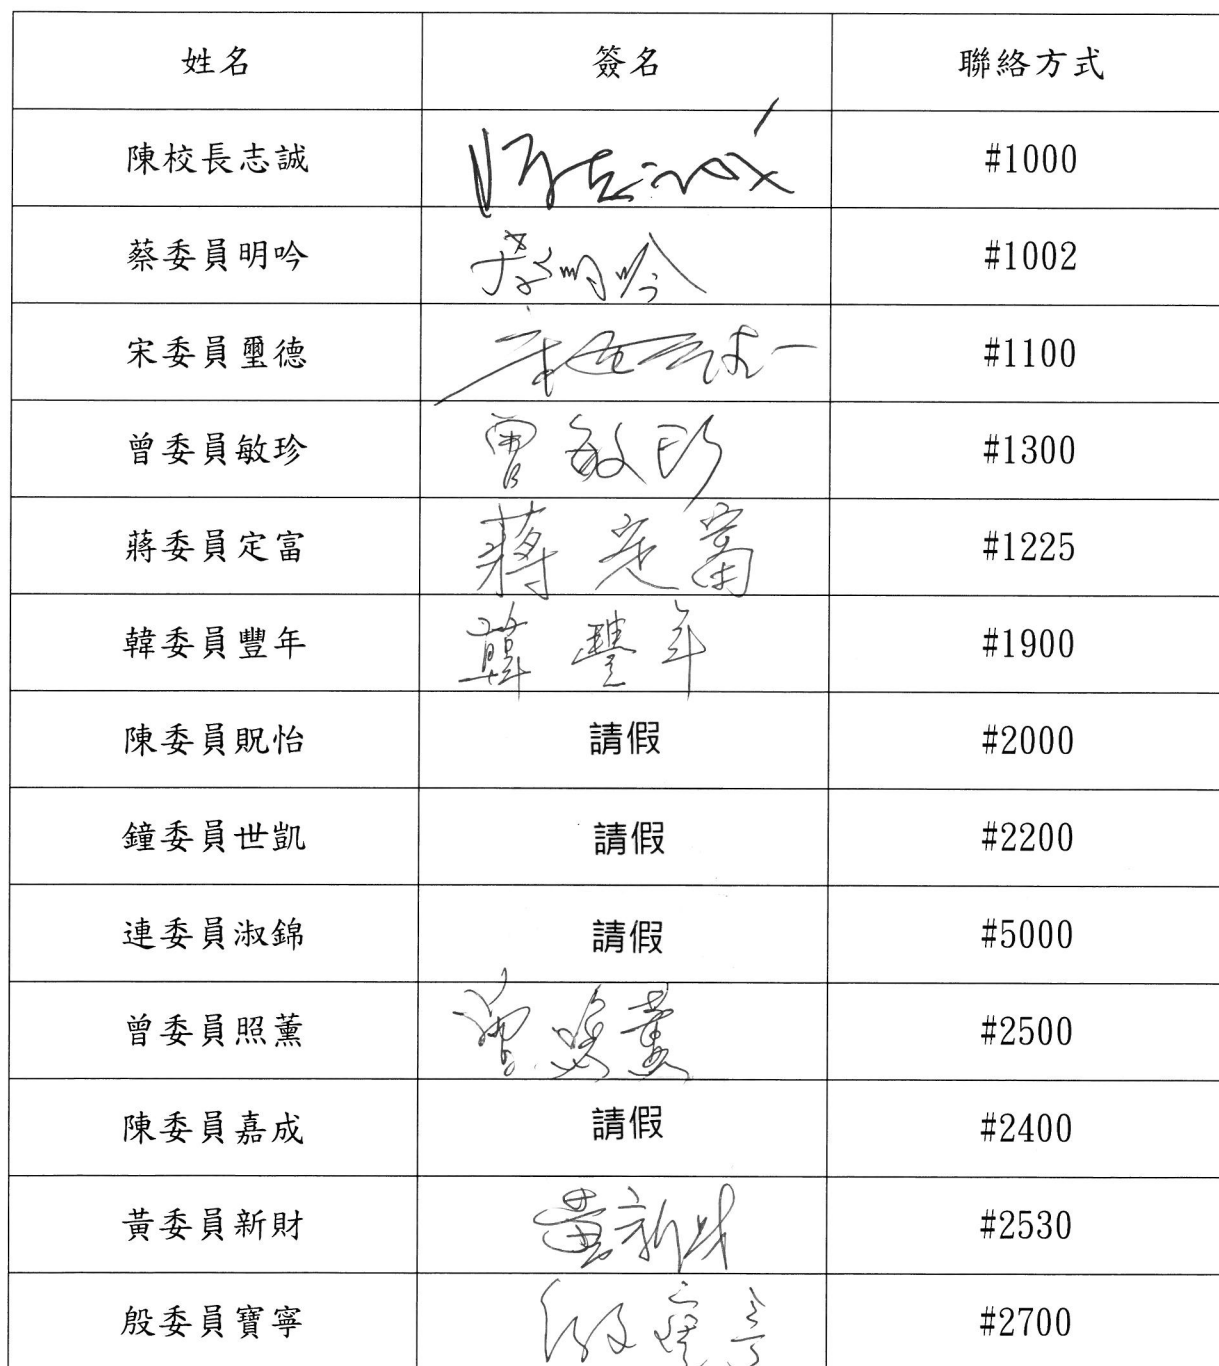 姓名 簽名 聯絡方式
陳校長志誠 陳志誠 #1000
蔡委員明吟 蔡明吟 #1002
宋委員璽德 宋璽德 #1100
曾委員敏珍 曾敏珍 #1300
蔣委員定富 蔣定富 #1225
韓委員豐年 韓豐年 #1900
陳委員貺怡 請假 #2000
鐘委員世凱 請假 #2200
連委員淑錦 請假 #5000
曾委員照薰 曾照薰 #2500
陳委員嘉成 請假 #2400
黃委員新財 黃新財 #2530
殷委員寶寧 殷寶寧 #2700